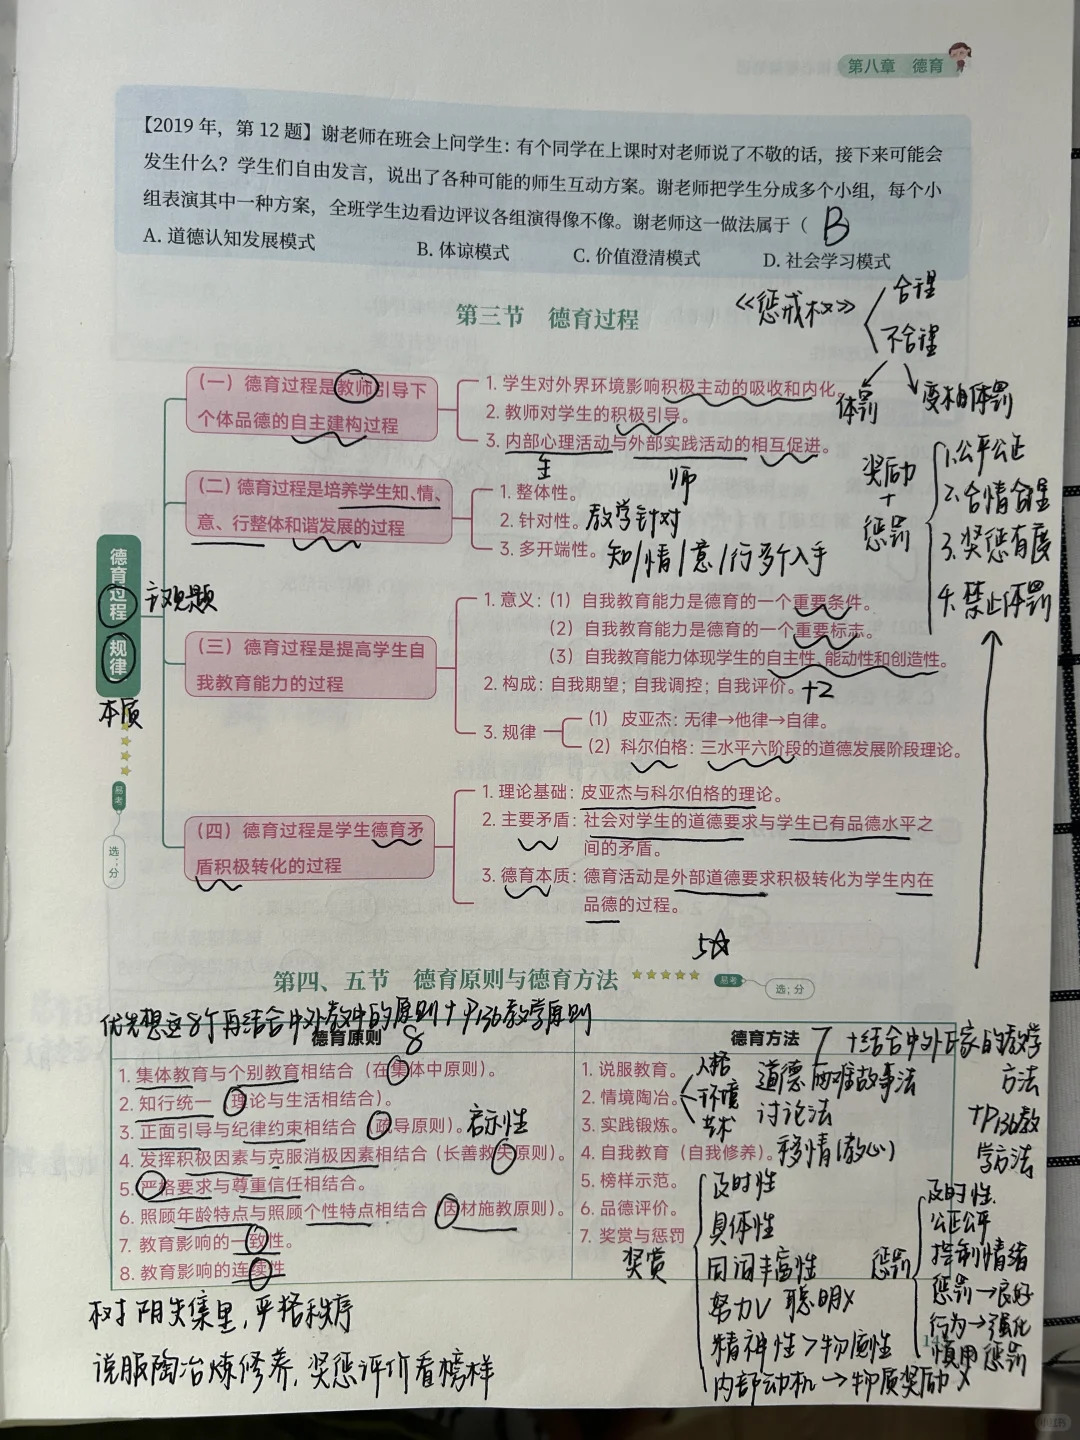 第八章 德育
【2019 年，第 12 题】谢老师在班会上问学生：有个同学在上课时对老师说了不敬的话，接下来可能会
发生什么？学生们自由发言，说出了各种可能的师生互动方案。谢老师把学生分成多个小组，每个小
组表演其中一种方案，全班学生边看边评议各组演得像不像。谢老师这一做法属于（ B
A. 道德认知发展模式 B. 体谅模式 C. 价值澄清模式 D. 社会学习模式
《惩戒权》
合理
不合理
体罚
变相体罚
第三节 德育过程
德育过程规律
主观题
本质
易考
选；分
（一）德育过程是教师引导下
个体品德的自主建构过程
1. 学生对外界环境影响积极主动的吸收和内化。
2. 教师对学生的积极引导。
3. 内部心理活动与外部实践活动的相互促进。
师
（二）德育过程是培养学生知、情、
意、行整体和谐发展的过程
1. 整体性。
2. 针对性。教学针对
3. 多开端性。知/情/意/行多个入手
奖励
+
惩罚
1.公平公正
2.合情合理
3.奖惩有度
4.禁止体罚
（三）德育过程是提高学生自
我教育能力的过程
1. 意义：（1）自我教育能力是德育的一个重要条件。
（2）自我教育能力是德育的一个重要标志。
（3）自我教育能力体现学生的自主性、能动性和创造性。
2. 构成：自我期望；自我调控；自我评价。+2
3. 规律
（1）皮亚杰：无律→他律→自律。
（2）科尔伯格：三水平六阶段的道德发展阶段理论。
（四）德育过程是学生德育矛
盾积极转化的过程
1. 理论基础：皮亚杰与科尔伯格的理论。
2. 主要矛盾：社会对学生的道德要求与学生已有品德水平之
间的矛盾。
3. 德育本质：德育活动是外部道德要求积极转化为学生内在
品德的过程。
5☆
第四、五节 德育原则与德育方法
易考
选；分
优先想这8个再结合中外教中的原则+P136教学原则
德育原则 8
1. 集体教育与个别教育相结合（在集体中原则）。
2. 知行统一（理论与生活相结合）。
3. 正面引导与纪律约束相结合（疏导原则）。启示性
4. 发挥积极因素与克服消极因素相结合（长善救失原则）。
5. 严格要求与尊重信任相结合。
6. 照顾年龄特点与照顾个性特点相结合（因材施教原则）。
7. 教育影响的一致性。
8. 教育影响的连续性
德育方法 7 +结合中外大家的教学
方法
+P136教
学方法
1. 说服教育。
2. 情境陶冶。
人格
环境
艺术
3. 实践锻炼。
4. 自我教育（自我修养）。
5. 榜样示范。
6. 品德评价。
7. 奖赏与惩罚
道德两难故事法
讨论法
移情(教心)
奖赏
及时性
具体性
同词丰富性
努力✓ 聪明×
精神性>物质性
内部动机→物质奖励×
惩罚
及时性
公正公平
控制情绪
惩罚→良好
行为→强化
慎用惩罚
树阴失集里，严格秩序
说服陶冶炼修养，奖惩评价看榜样
小红书